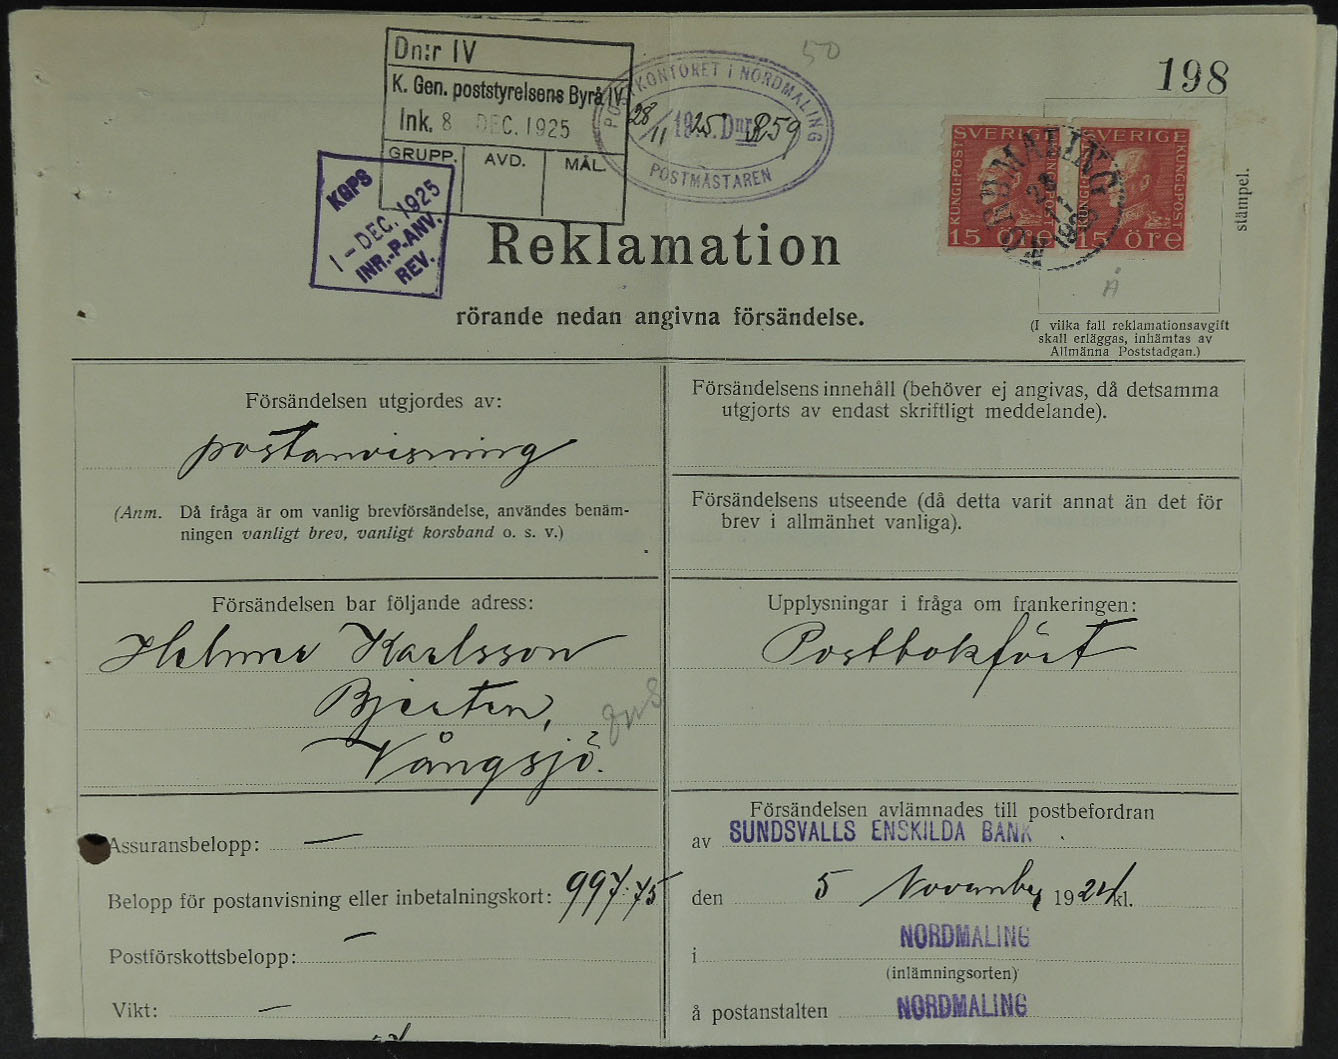 50
198
Dn:r IV
K. Gen. poststyrelsens Byrå IV
Ink. 8 DEC. 1925
GRUPP. AVD. MÅL.
POSTKONTORET i NORDMALING
28/11 1925 Dnr 859
POSTMÄSTAREN
KGPS
1 - DEC. 1925
INR.-P.-ANV.
REV.
SVERIGE SVERIGE
KUNGL. POST KUNGL. POST
15 öre 15 öre
NORDMALING
28
11
1925
stämpel.
Reklamation
rörande nedan angivna försändelse.
(I vilka fall reklamationsavgift
skall erläggas, inhämtas av
Allmänna Poststadgan.)
Försändelsen utgjordes av:
postanvisning
(Anm. Då fråga är om vanlig brevförsändelse, användes benäm-
ningen vanligt brev, vanligt korsband o. s. v.)
Försändelsen bar följande adress:
Helmer Karlsson
Bjerten,
Vångsjö.
Assuransbelopp: —
Belopp för postanvisning eller inbetalningskort: 997:75
Postförskottsbelopp: —
Vikt: —
Försändelsens innehåll (behöver ej angivas, då detsamma
utgjorts av endast skriftligt meddelande).
Försändelsens utseende (då detta varit annat än det för
brev i allmänhet vanliga).
Upplysningar i fråga om frankeringen:
Postbokfört
Försändelsen avlämnades till postbefordran
av SUNDSVALLS ENSKILDA BANK
den 5 November 1924 kl.
i NORDMALING
(inlämningsorten)
å postanstalten NORDMALING